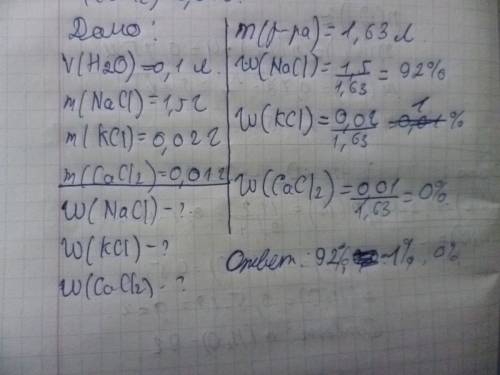 Дано:
V(H2O)=0,1 л
m(NaCl)=1,5г
m(KCl)=0,02г
m(CaCl2)=0,01г
W(NaCl)-?
W(KCl)-?
W(CaCl2)-?
m(р-ра)=1,63л
W(NaCl)=1,5/1,63=92%
W(KCl)=0,02/1,63=1%
W(CaCl2)=0,01/1,63=0%
Ответ: 92%, 1%, 0%